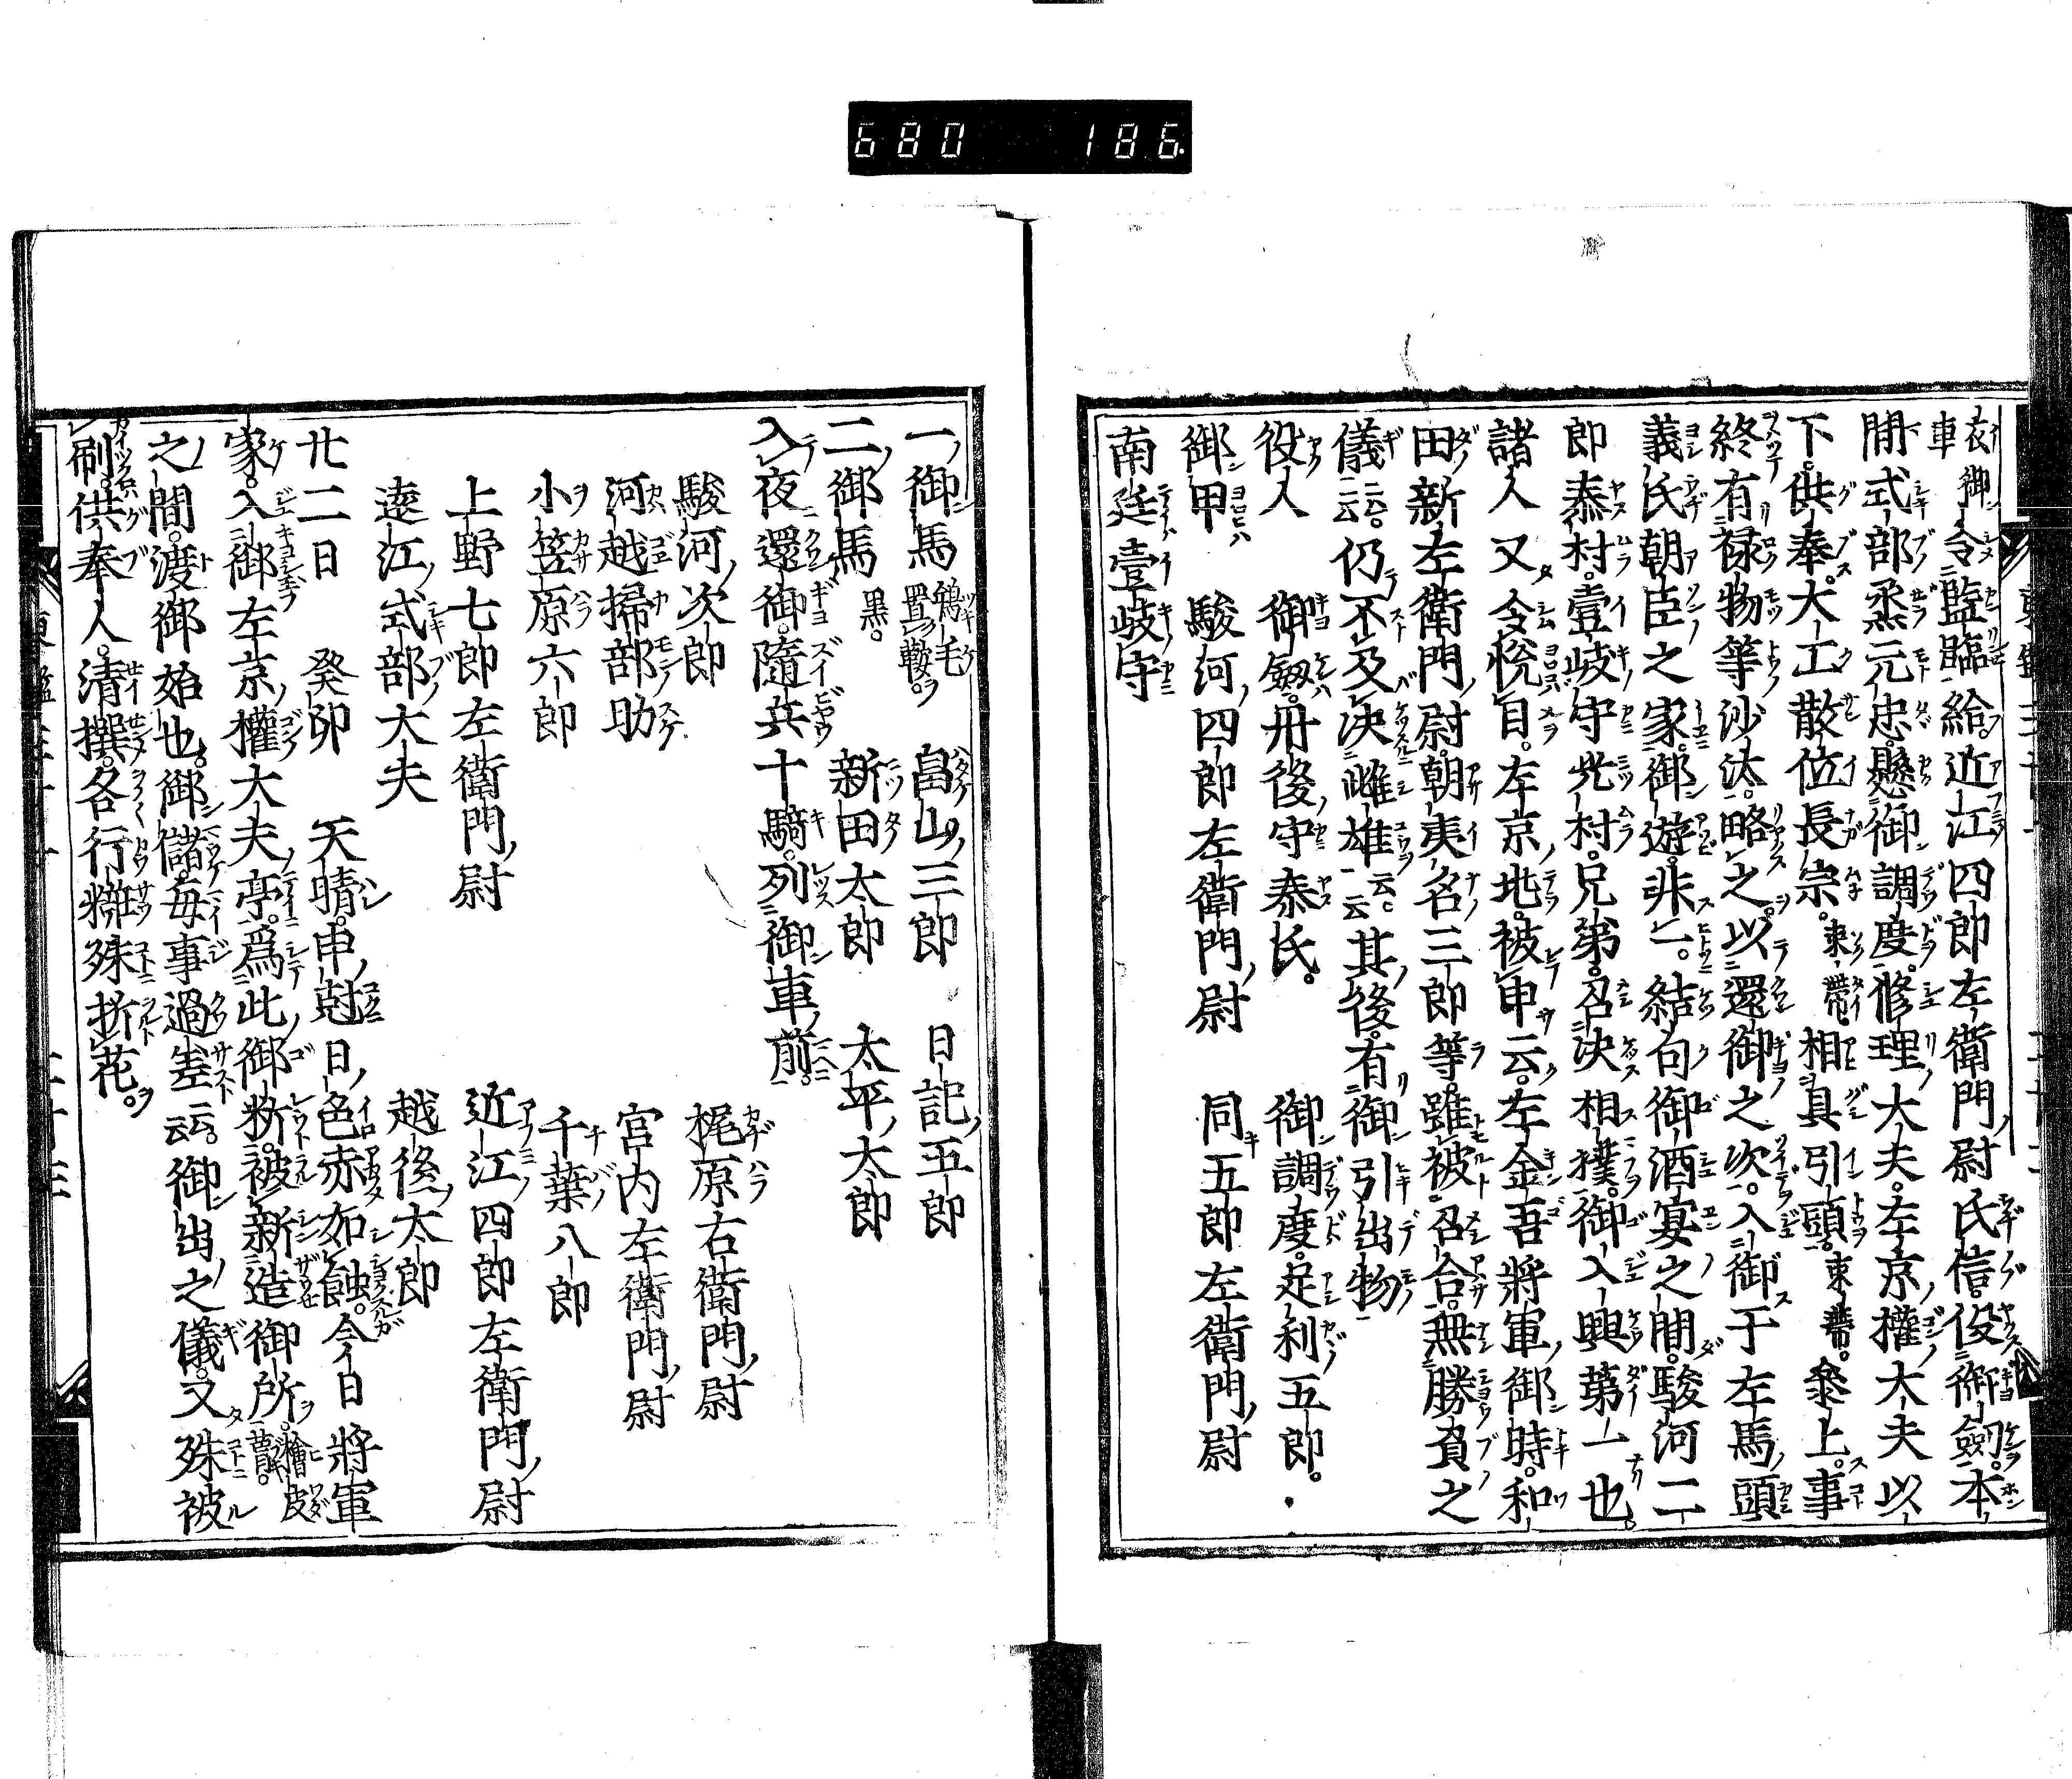 680 186
衣御車令監臨給。近江四郎左衛門尉氏信。役御劔。本
間式部丞元忠。懸御調度。修理大夫。左京權大夫以
下。供奉。大工散位長宗。束帶。相具引頭。束帶。參上。事
終有禄物等沙汰。略之。以還御之次。入御于左馬頭
義氏朝臣之家。御遊非一。結句御酒宴之間。駿河二
郎泰村。壹岐守光村。兄弟。召決相撲。御入興第一也。
諸人又令悦目。左京兆。被申云。左金吾將軍御時。和
田新左衛門尉。朝夷名三郎等。雖被召合。無勝負之
儀云云。仍不及決雌雄云云。其後。有御引出物
役人
御劔。丹後守泰氏。 御調度。足利五郎。
御甲 駿河四郎左衛門尉 同五郎左衛門尉
南廷壹岐守
一御馬 鴾毛置鞍。 畠山三郎 日記五郎
二御馬 黒。 新田太郎 太平太郎
入夜還御。隨兵十騎。列御車前。
駿河次郎 梶原右衛門尉
河越掃部助 宮内左衛門尉
小笠原六郎 千葉八郎
上野七郎左衛門尉 近江四郎左衛門尉
遠江式部大夫 越後太郎
廿二日 癸卯 天晴。申尅日色赤如蝕。今日將軍
家。入御左京權大夫亭。爲此御料。被新造御所。檜皮葺。
之間。渡御始也。御儲。毎事過差云云。御出之儀。又殊被
刷。供奉人。清撰。各行粧殊折花。